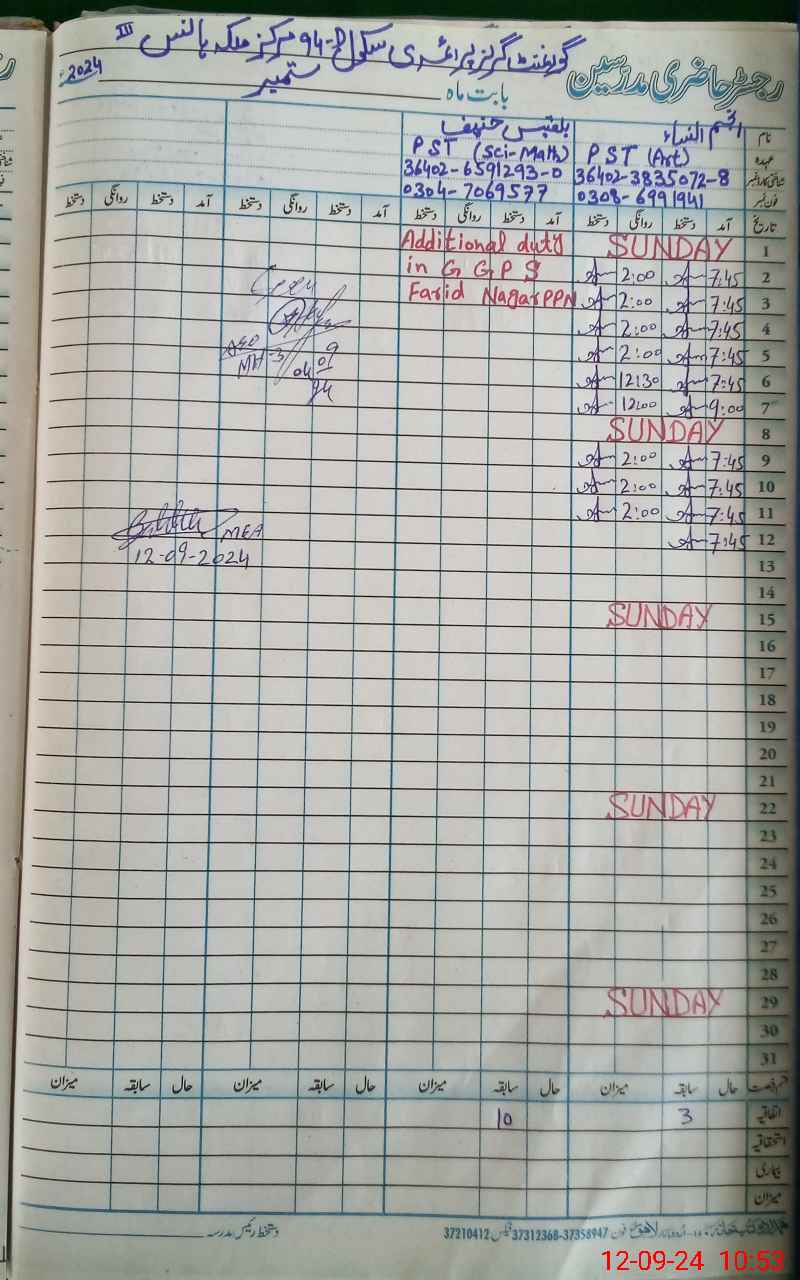 رجسٹر حاضری مدرسین
گورنمنٹ گرلز پرائمری سکول 94-D مرکز ملکہ ہانس III
بابت ماہ ستمبر 2024ء
نام انجم النساء بلقیس حنیف
عہدہ PST (Art) PST (Sci-Math)
شناختی کارڈ نمبر 36402-3835072-8 36402-6591293-0
فون نمبر 0308-6991941 0304-7069577
تاریخ آمد دستخط روانگی دستخط آمد دستخط روانگی دستخط آمد دستخط روانگی دستخط آمد دستخط روانگی دستخط
1 SUNDAY Additional duty
2 7:45 2:00 in G G P S
3 7:45 2:00 Farid Nagar PPN
4 7:45 2:00
5 7:45 2:00
6 7:45 12:30
7 9:00 12:00
8 SUNDAY
9 7:45 2:00
10 7:45 2:00
11 7:45 2:00
12 7:45
13
14
15 SUNDAY
16
17
18
19
20
21
22 SUNDAY
23
24
25
26
27
28
29 SUNDAY
30
31
AEO
MH-3
04/09
24
MEA
12-09-2024
قسم رخصت حال سابقہ میزان حال سابقہ میزان حال سابقہ میزان حال سابقہ میزان
اتفاقیہ 3 10
استحقاقیہ
بیماری
میزان
دستخط رئیس مدرسہ
لاہور فون 37312368-37358947 فیکس 37210412
12-09-24 10:53